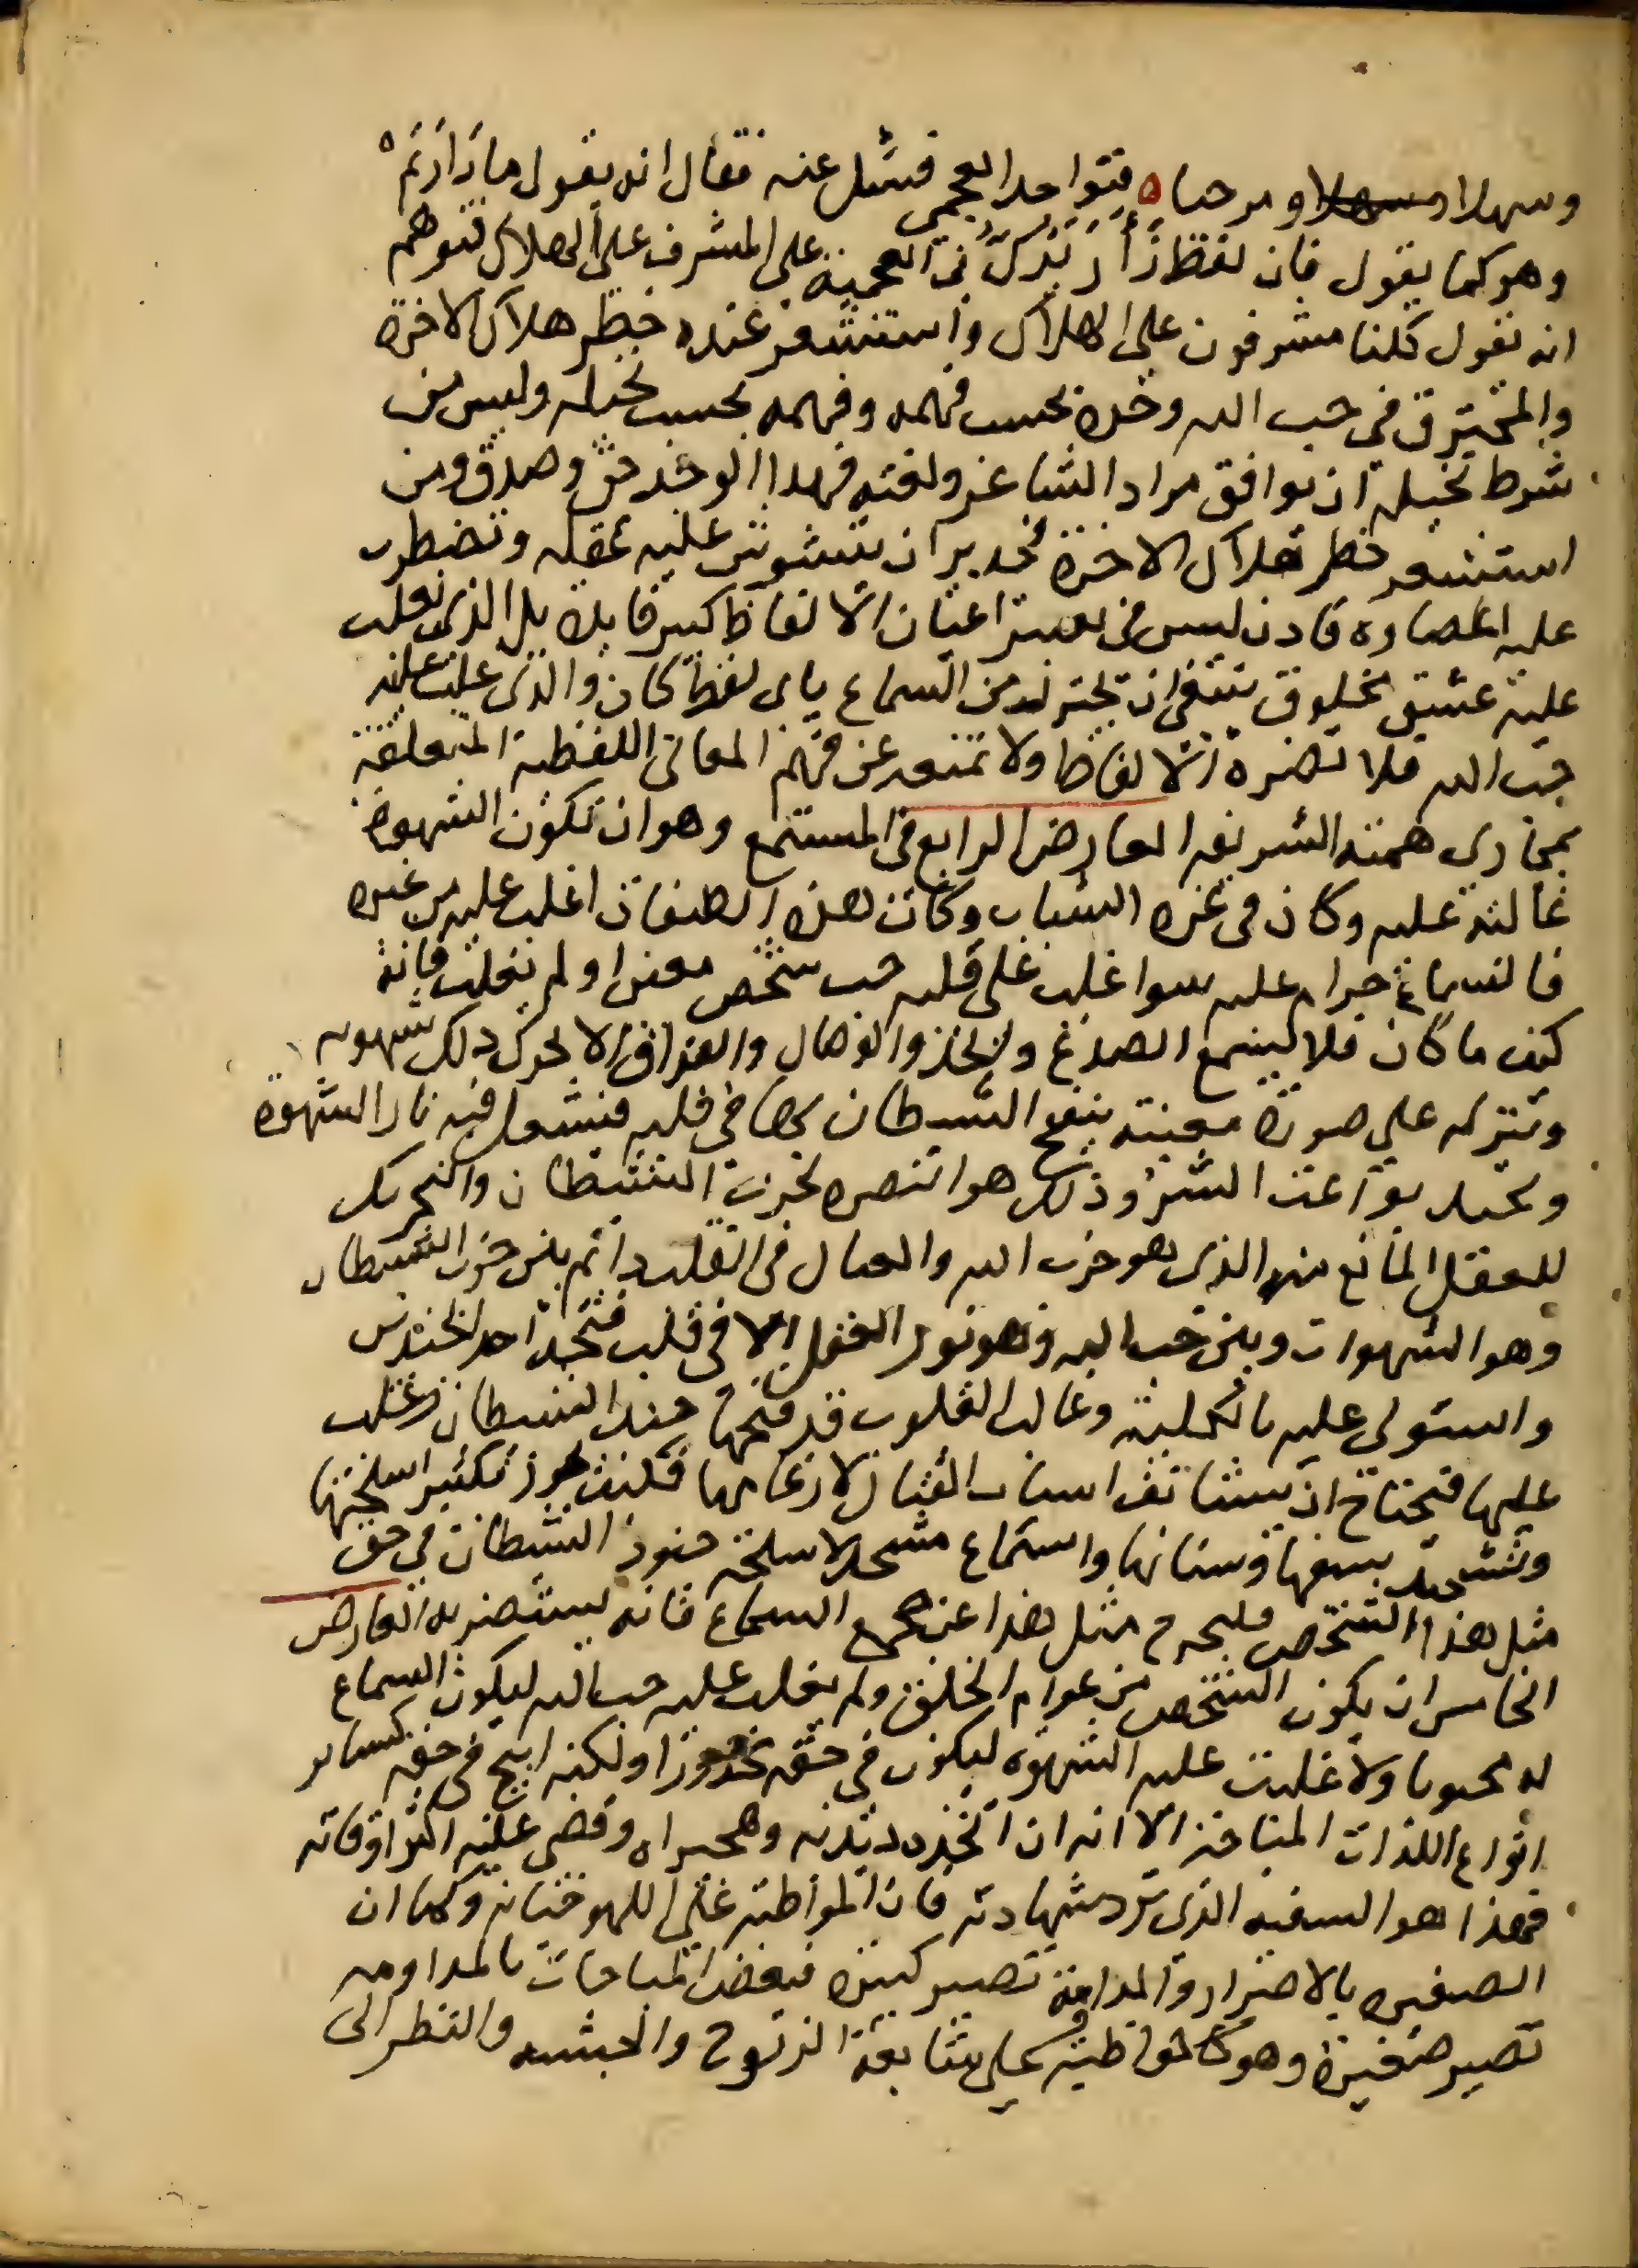 وسهلا وسهلا ومرحبا ٥ فتواجد العجمي فسئل عنه فقال انه يقول ما زارتم
وهو كما يقول فان لفظ زار تدل في العجمية على المشرف على الهلاك فتوهم
انه يقول كلنا مشرفون على الهلاك واستشعر عنده خطر هلاك الاخرة
والمحترق في حب الله وجده بحسب فهمه وفهمه بحسب تخيله وليس من
شرط تخيله ان يوافق مراد الشاعر ولغته فهذا الوجد حق وصدق ومن
استشعر خطر هلاك الاخرة فجدير ان يتشوش عليه عقله وتضطرب
عليه اعضاوه فاذن ليس في تغيير اعيان الالفاظ كبير فايدة بل الذي يغلب
عليه عشق مخلوق ينبغي ان يحترز من السماع باي لفظ كان والذي غلب عليه
حب الله فلا تضره الالفاظ ولا تمنعه عن فهم المعاني اللفظية المتعلقة
بمجاري همته الشريفه العارض الرابع في المستمع وهو ان تكون الشهوة
غالبة عليه وكان في غرة الشباب وكانت هذه الصفات اغلب عليه من غيره
فالسماع حرام عليه سوا غلب على قلبه حب شخص معين او لم يغلب فانه
كيف ما كان فلا يسمع الصدغ والخد والوصال والفراق الا يحرك ذلك شهوته
وينزله على صورة معينة ينفخ الشيطان بها في قلبه فيشعل فيه نار الشهوة
ويحتد بواعث الشر وذلك هو النصرة لحزب الشيطان والتحريك
للعقل المانع منه الذي هو حزب الله والقتال في القلب دائم بين حزب الشيطان
وهو الشهوات وبين حزب الله وهو نور العقل الا في قلب فتحه احد الجندين
واستولى عليه بالكلية وغالب القلوب قد فتحها جند الشيطان وغلب
عليها فتحتاج ان يستانف اسباب القتال لازعاجها فكيف يجوز تكثير اسلحتها
وتشحيذ سيفها وسنانها واستماع مشحذ لاسلحة جنود الشيطان في حق
مثل هذا الشخص فليخرج مثل هذا عن جمع السماع فانه يستضر به العارض
الخامس ان يكون الشخص من عوام الخلق ولم يغلب عليه حب الله ليكون السماع
له محبوبا ولا غلبت عليه الشهوة ليكون في حقه محذورا ولكنه ابيح في حقه كساير
انواع اللذات المباحة الا انه ان اتخذه ديدنه وهجيراه وقصر عليه اكثر اوقاته
فهذا هو السفيه الذي ترد شهادته فان المواظبة على اللهو جناية وكما ان
الصغيره بالاصرار والمداومة تصير كبيرة فبعض المباحات بالمداومه
تصير صغيرة وهو كالمواظبة على متابعة الزنوج والحبشه والنظر الى